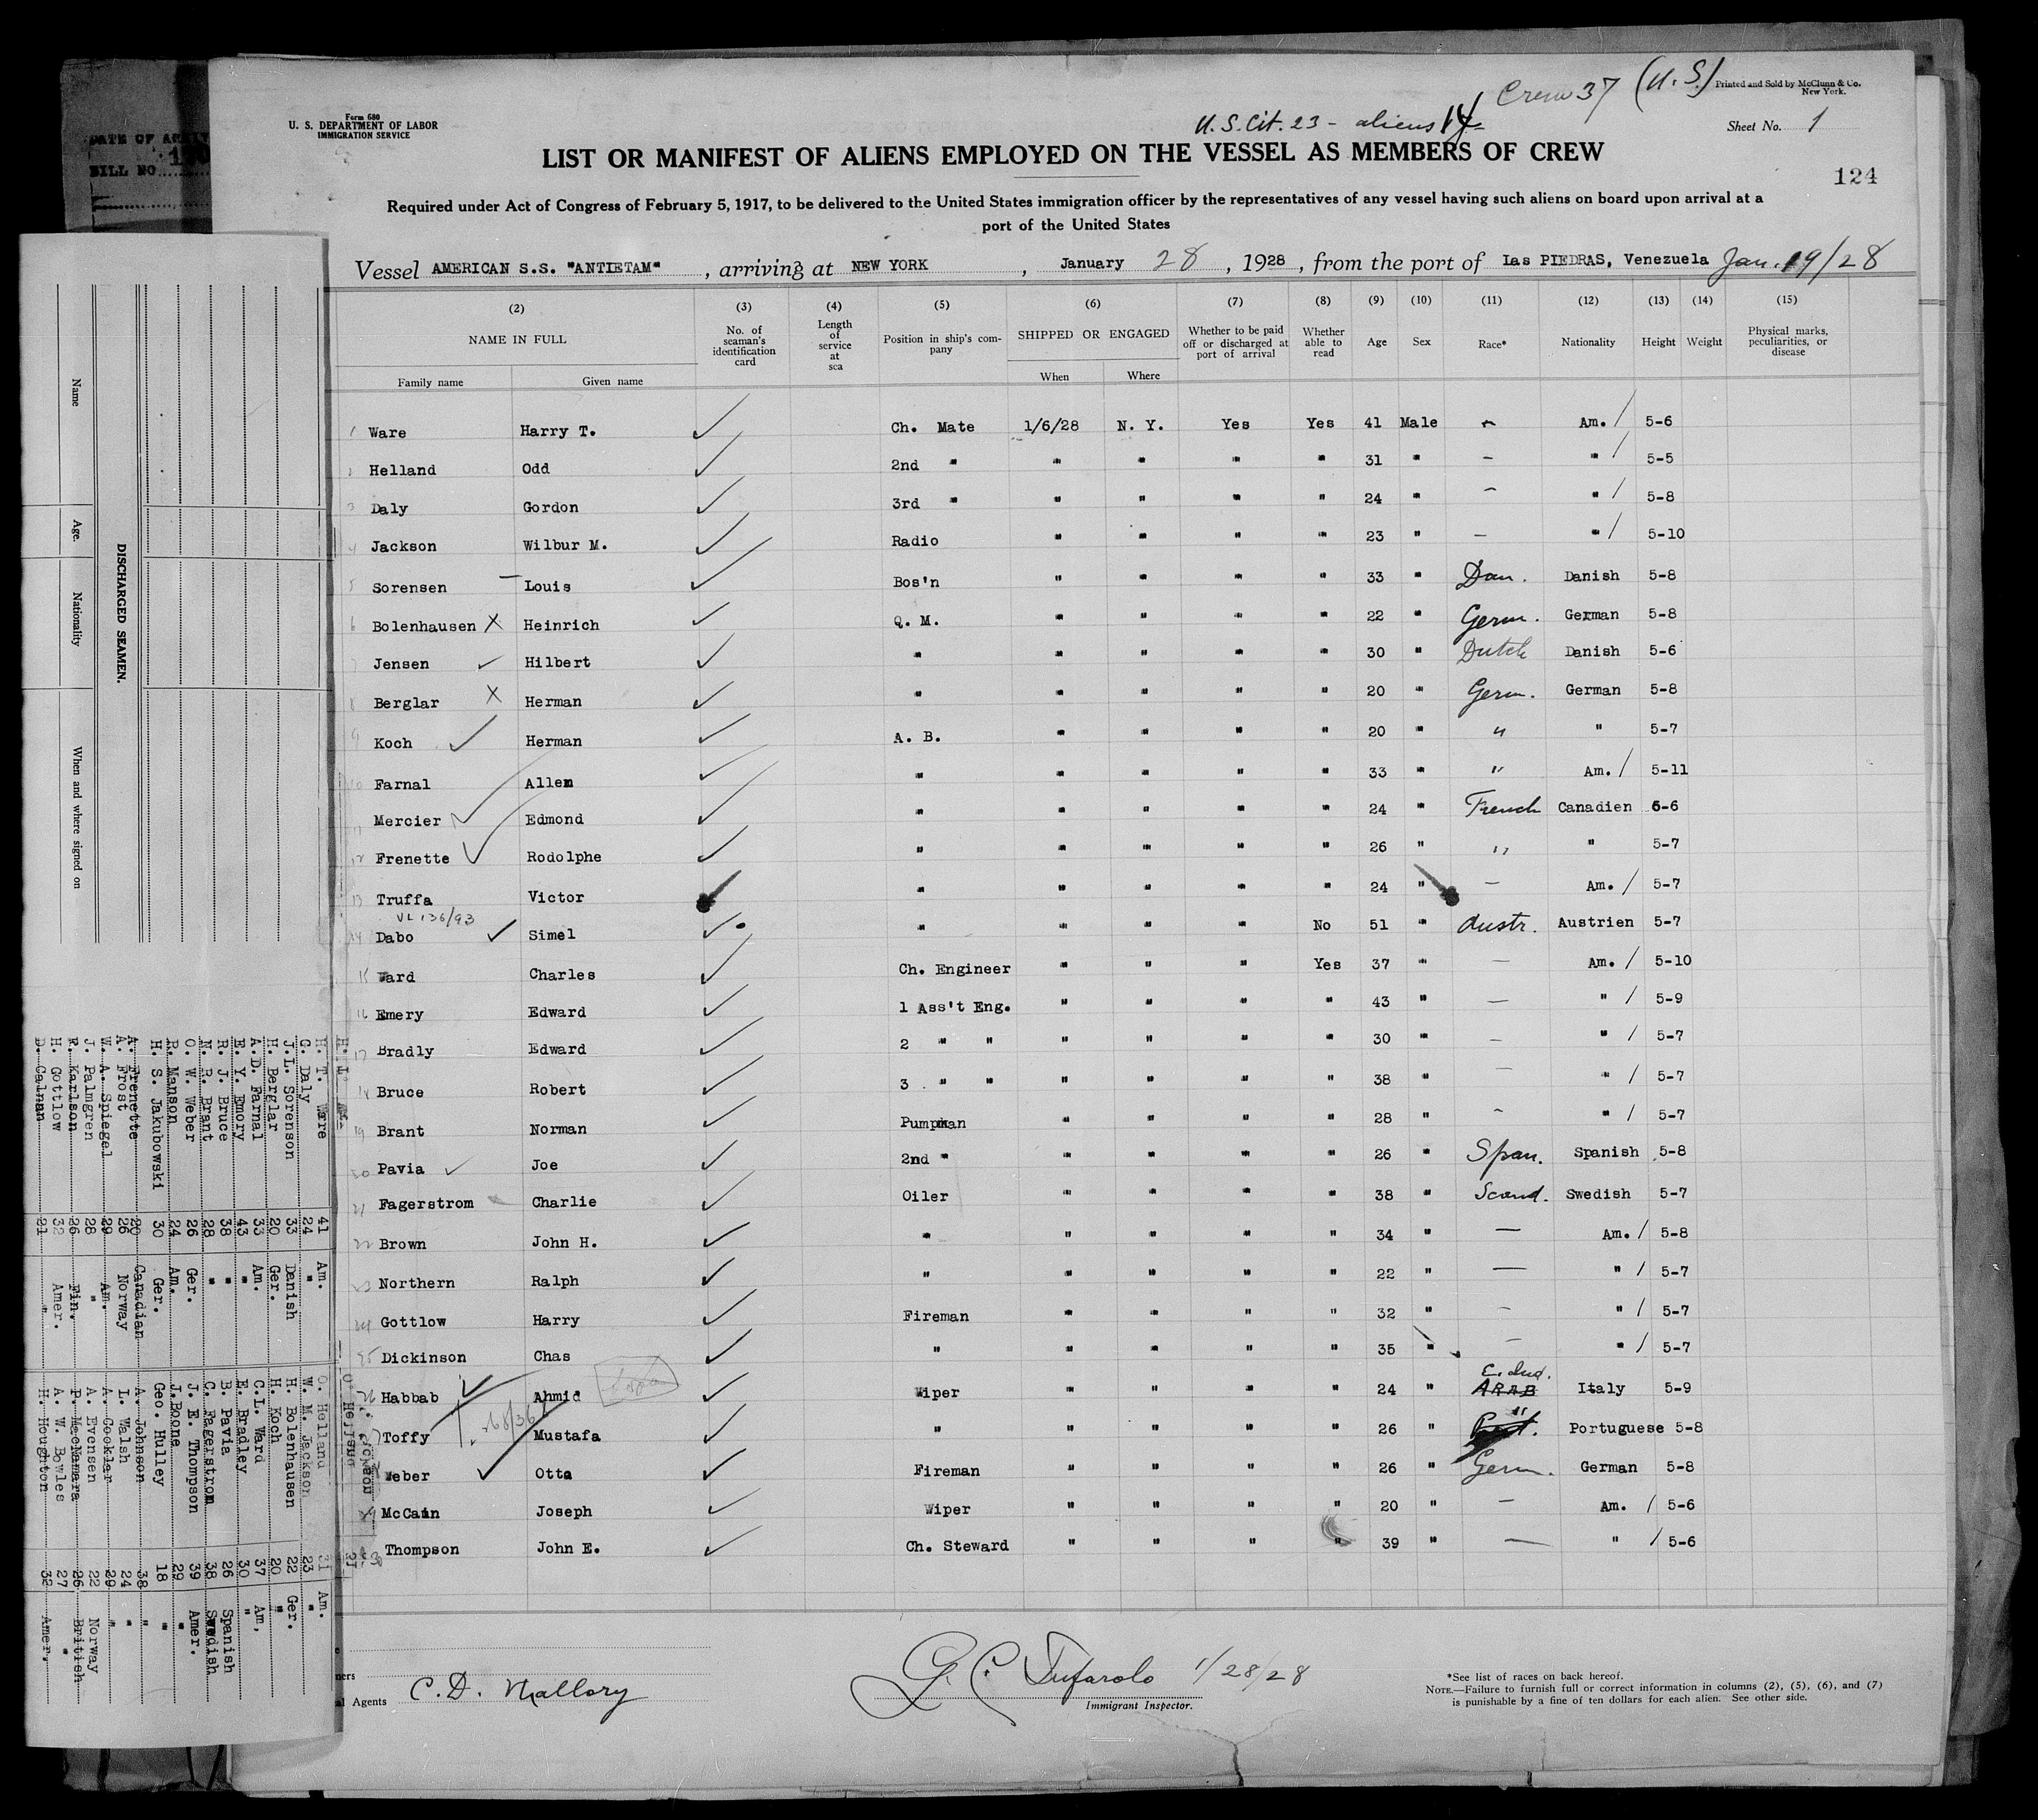 Crew 37 (U.S.)
Printed and Sold by McClunn & Co.
New York.
Form 680
U. S. DEPARTMENT OF LABOR
IMMIGRATION SERVICE
U.S. Cit. 23 - aliens 14
Sheet No. 1
LIST OR MANIFEST OF ALIENS EMPLOYED ON THE VESSEL AS MEMBERS OF CREW
124
Required under Act of Congress of February 5, 1917, to be delivered to the United States immigration officer by the representatives of any vessel having such aliens on board upon arrival at a
port of the United States
Vessel AMERICAN S.S. "ANTIETAM" , arriving at NEW YORK , January 28 , 1928 , from the port of Las PIEDRAS, Venezuela Jan. 19/28
(2) (3) (4) (5) (6) (7) (8) (9) (10) (11) (12) (13) (14) (15)
NAME IN FULL No. of seaman's identification card Length of service at sea Position in ship's company SHIPPED OR ENGAGED Whether to be paid off or discharged at port of arrival Whether able to read Age Sex Race* Nationality Height Weight Physical marks, peculiarities, or disease
Family name Given name When Where
1 Ware Harry T. Ch. Mate 1/6/28 N. Y. Yes Yes 41 Male - Am. / 5-6
2 Helland Odd 2nd " " " " " 31 " - " / 5-5
3 Daly Gordon 3rd " " " " " 24 " - " / 5-8
4 Jackson Wilbur M. Radio " " " " 23 " - " / 5-10
5 Sorensen Louis Bos'n " " " " 33 " Dan. Danish 5-8
6 Bolenhausen X Heinrich Q. M. " " " " 22 " Germ. German 5-8
7 Jensen Hilbert " " " " " 30 " Dutch Danish 5-6
8 Berglar X Herman " " " " " 20 " Germ. German 5-8
9 Koch Herman A. B. " " " " 20 " " " 5-7
10 Farnal Allen " " " " " 33 " " Am. / 5-11
11 Mercier Edmond " " " " " 24 " French Canadien 5-6
12 Frenette Rodolphe " " " " " 26 " " " 5-7
13 Truffa Victor " " " " " 24 " - Am. / 5-7
VL 136/93
14 Dabo Simel " " " " No 51 " Austr. Austrien 5-7
15 Ward Charles Ch. Engineer " " " Yes 37 " - Am. / 5-10
16 Emery Edward 1 Ass't Eng. " " " " 43 " - " / 5-9
17 Bradly Edward 2 " " " " " " 30 " - " / 5-7
18 Bruce Robert 3 " " " " " " 38 " - " / 5-7
19 Brant Norman Pumpman " " " " 28 " - " / 5-7
20 Pavia Joe 2nd " " " " " 26 " Span. Spanish 5-8
21 Fagerstrom Charlie Oiler " " " " 38 " Scand. Swedish 5-7
22 Brown John H. " " " " " 34 " - Am. / 5-8
23 Northern Ralph " " " " " 22 " - " / 5-7
24 Gottlow Harry Fireman " " " " 32 " - " / 5-7
25 Dickinson Chas " " " " " 35 " - " / 5-7
E. Ind.
26 Habbab Ahmid Wiper " " " " 24 " ARAB Italy 5-9
Toffy Mustafa " " " " " 26 " " Portuguese 5-8
Weber Otto Fireman " " " " 26 " Germ. German 5-8
29 McCain Joseph Wiper " " " " 20 " - Am. / 5-6
30 Thompson John E. Ch. Steward " " " " 39 " - " / 5-6
C. D. Mallory
Agents
G. C. Tufarolo 1/28/28
Immigrant Inspector.
*See list of races on back hereof.
NOTE.—Failure to furnish full or correct information in columns (2), (5), (6), and (7)
is punishable by a fine of ten dollars for each alien. See other side.
DATE OF
BILL NO
DISCHARGED SEAMEN.
Name Age. Nationality When and where signed on
H. T. Ware 41 Am. O. Helland 31 Am.
G. Daly 24 " W. M. Jackson 23 "
J.L. Sorenson 33 Danish H. Bolenhausen 22 Ger.
H. Berglar 20 Ger. H. Koch 20 "
A.D. Farnal 33 Am. C.L. Ward 37 Am.
E. Y. Emory 43 " E. Bradley 30 "
R. J. Bruce 38 " B. Pavia 26 Spanish
N. P. Brant 28 " C. Fagerstrom 38 Swedish
O. W. Weber 26 Ger. J. E. Thompson 39 Amer.
P. Manson 24 Am. J.Boone 29 "
H. S. Jakubowski 30 Ger. Geo. Hulley 18 "
A. Frenette 20 Canadian A. Johnson 38 "
A. Frost 26 Norway L. Walsh 24 "
W. A. Spiegel 29 Am. A. Cookler 29 "
J. Palmgren 28 " A. Evensen 22 Norway
R. Karlson 26 Fin. P. McNamara 26 British
H. Gottlow 32 Amer. A. W. Bowles 27 "
D. Calnan 21 " H. Houghton 32 Amer.